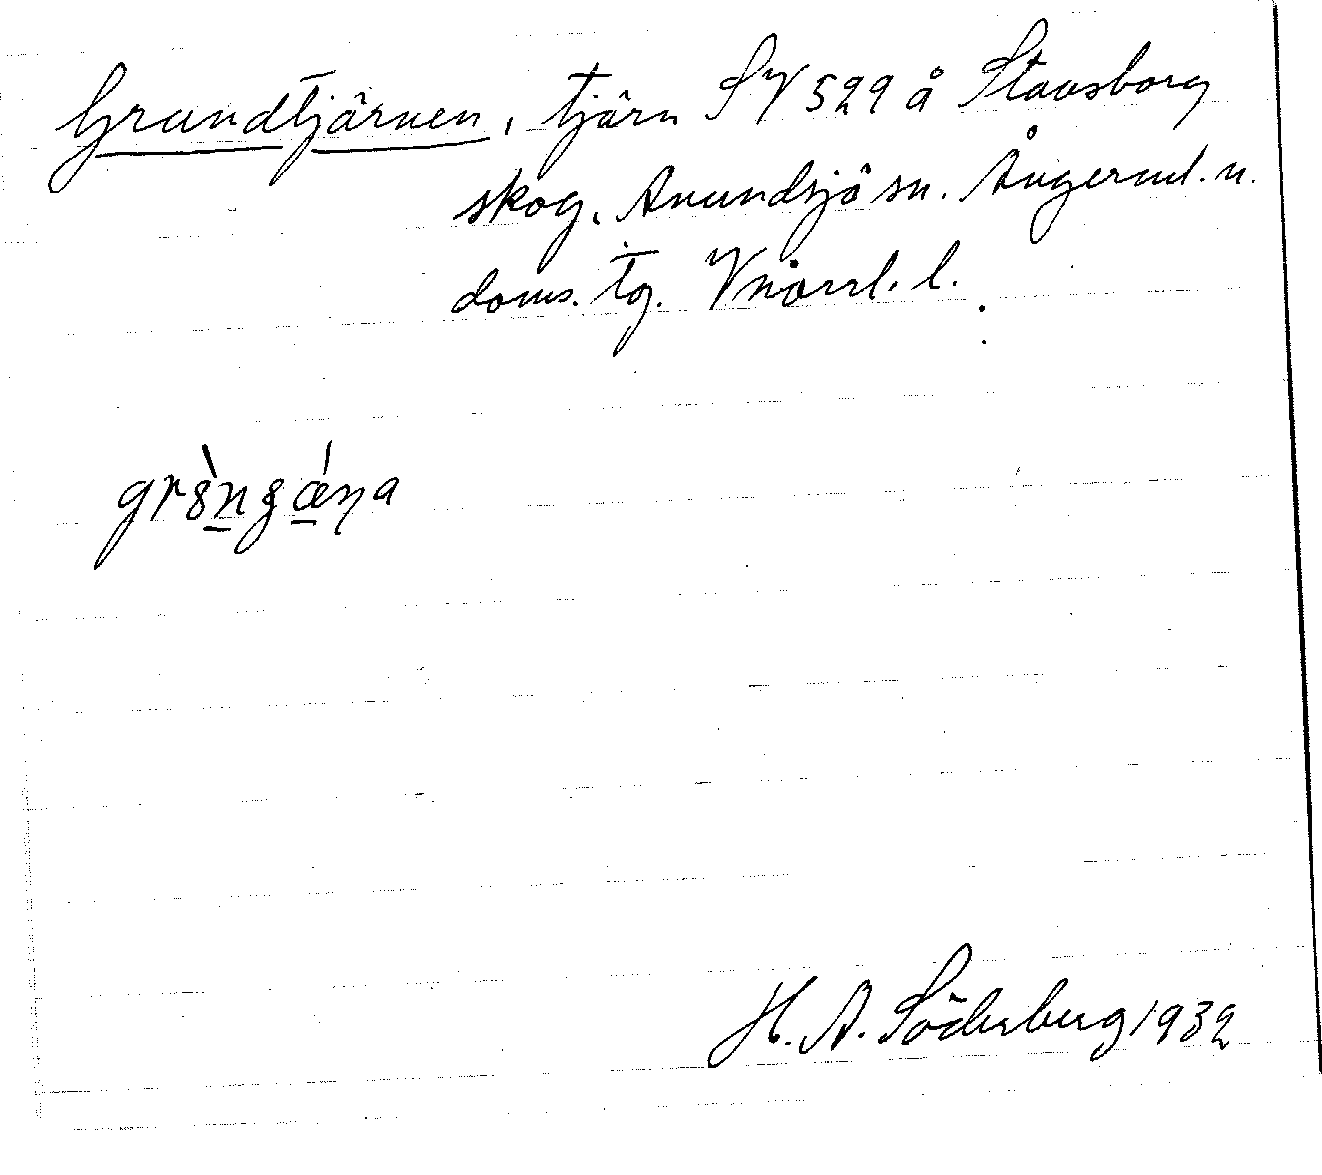 Grundtjärnen, tjärn SV 529 å Stavsborg
skog, Anundsjö sn. Ångerml. n.
doms. tg. Vnorrl. l.
H. A. Söderberg 1932